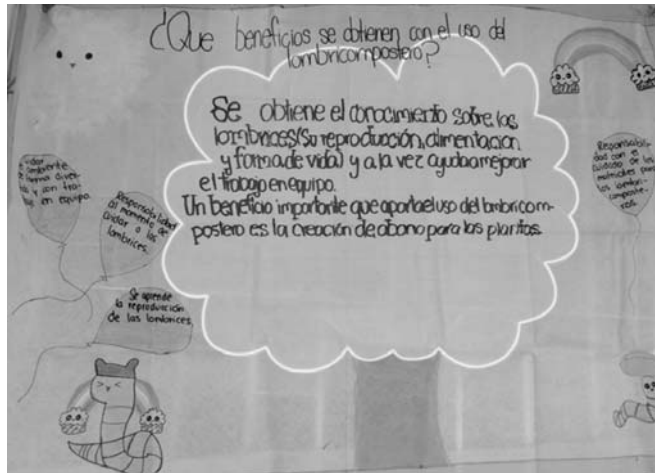 ¿Que beneficios se obtienen con el uso del
lombricompostero?
Se obtiene el conocimiento sobre las
lombrices(Su reproducción, alimentacion
y forma de vida) y a la vez ayuda a mejorar
el trabajo en equipo.
Un beneficio importante que aporta el uso del lombricom-
postero es la creación de abono para las plantas.
ambiente
forma diver
y con tra
en equipo.
Responsabilidad
al momento de
cuidar a las
lombrices.
Se aprende
la reproducción
de las lombrices
Responsabili-
dad con el
cuidado de los
materiales para
las lombri-
composte-
ras.